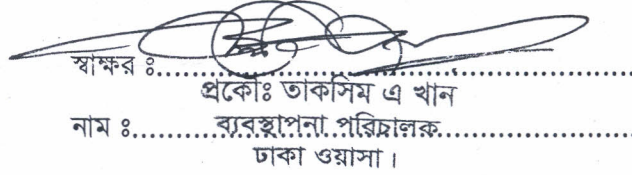 স্বাক্ষর ঃ....................................................................
প্রকৌঃ তাকসিম এ খান
নাম ঃ............ব্যবস্থাপনা পরিচালক............................
ঢাকা ওয়াসা।